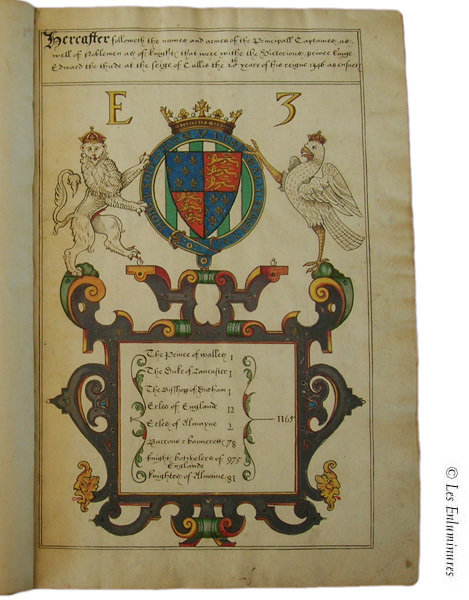 Hereafter followeth the names and armes of the Principall Captaines as
well of Noblemen as of knights that were withe the Victorious prince kinge
Edward the thirde at the seige of Callis the 20th yeare of his reigne 1346 as ensueth
E 3
The Prince of walles 1
The Duke of Lancaster 1
The Bishop of Durham 1
Erles of Englande 12
Erles of Almayne 2
Barrons & bannerets 78
knight batchelers of
Englande 975
knightes of Almaine 81
1165
© Les Enluminures